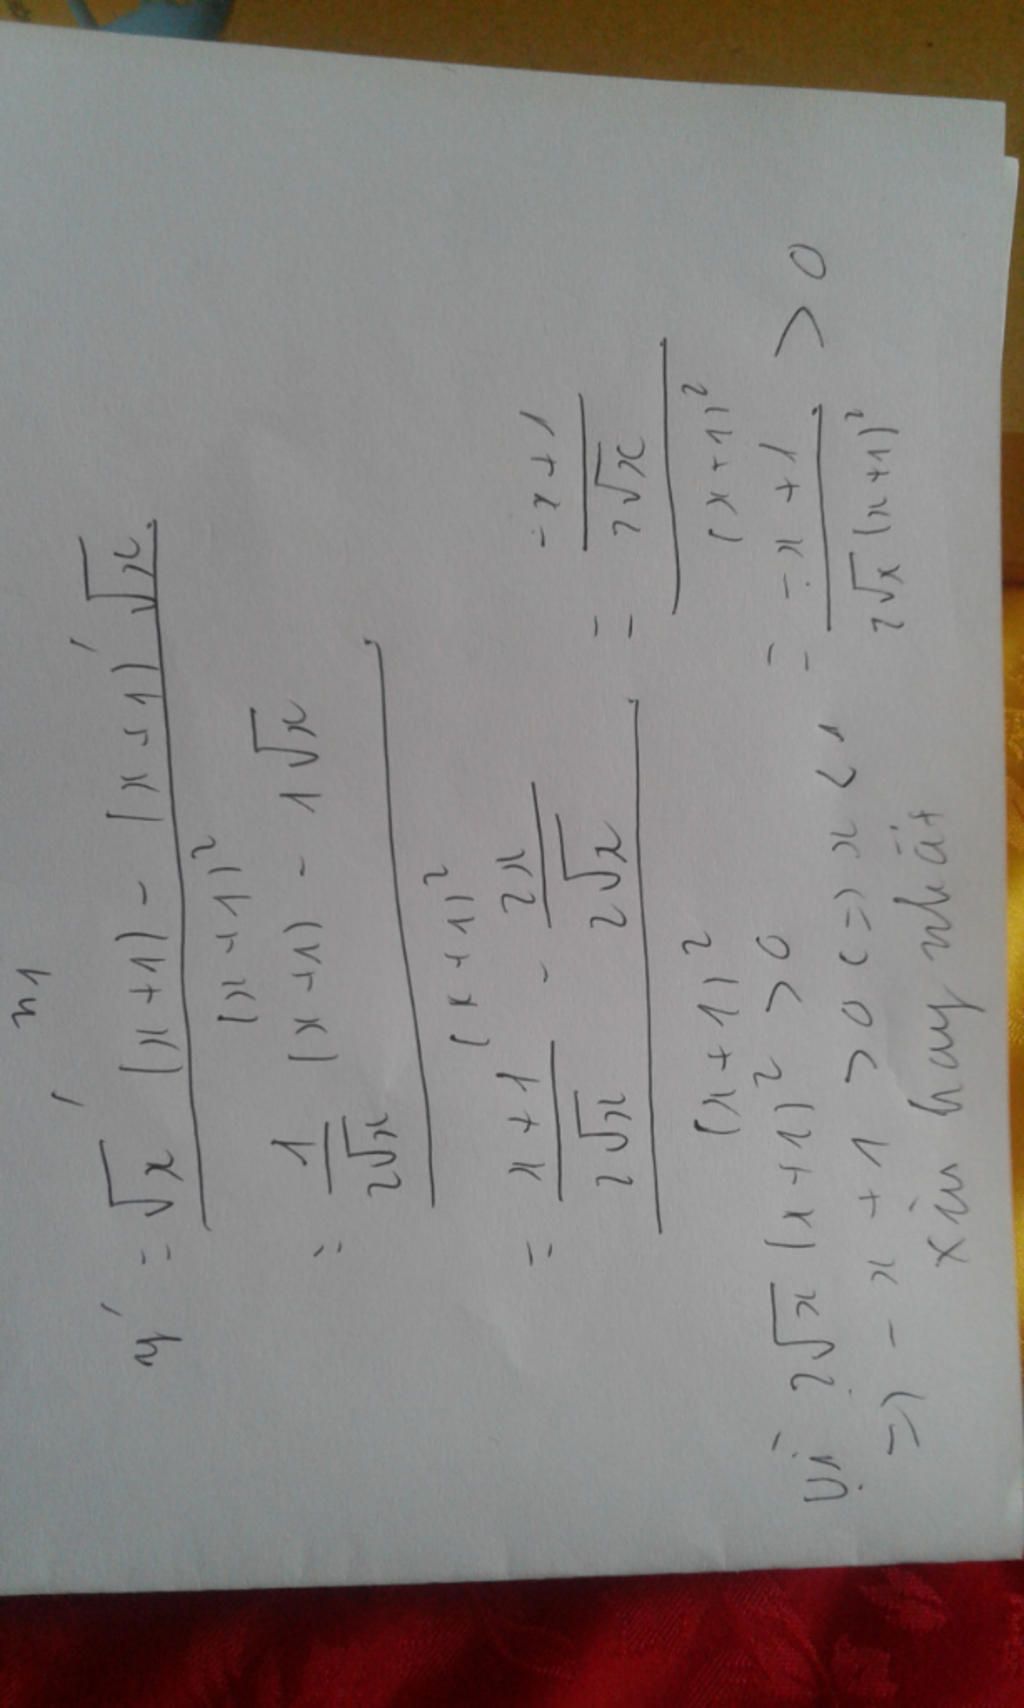 x1
y' = √x' (x+1) - (x+1)' √x / (x+1)²
= 1/2√x (x+1) - 1√x / (x+1)²
= x+1/2√x - 2x/2√x / (x+1)² = -x+1/2√x / (x+1)²
= -x+1 / 2√x(x+1)² > 0
vì 2√x (x+1)² > 0
=) -x+1 > 0 (=) x < 1
xin hay nhất